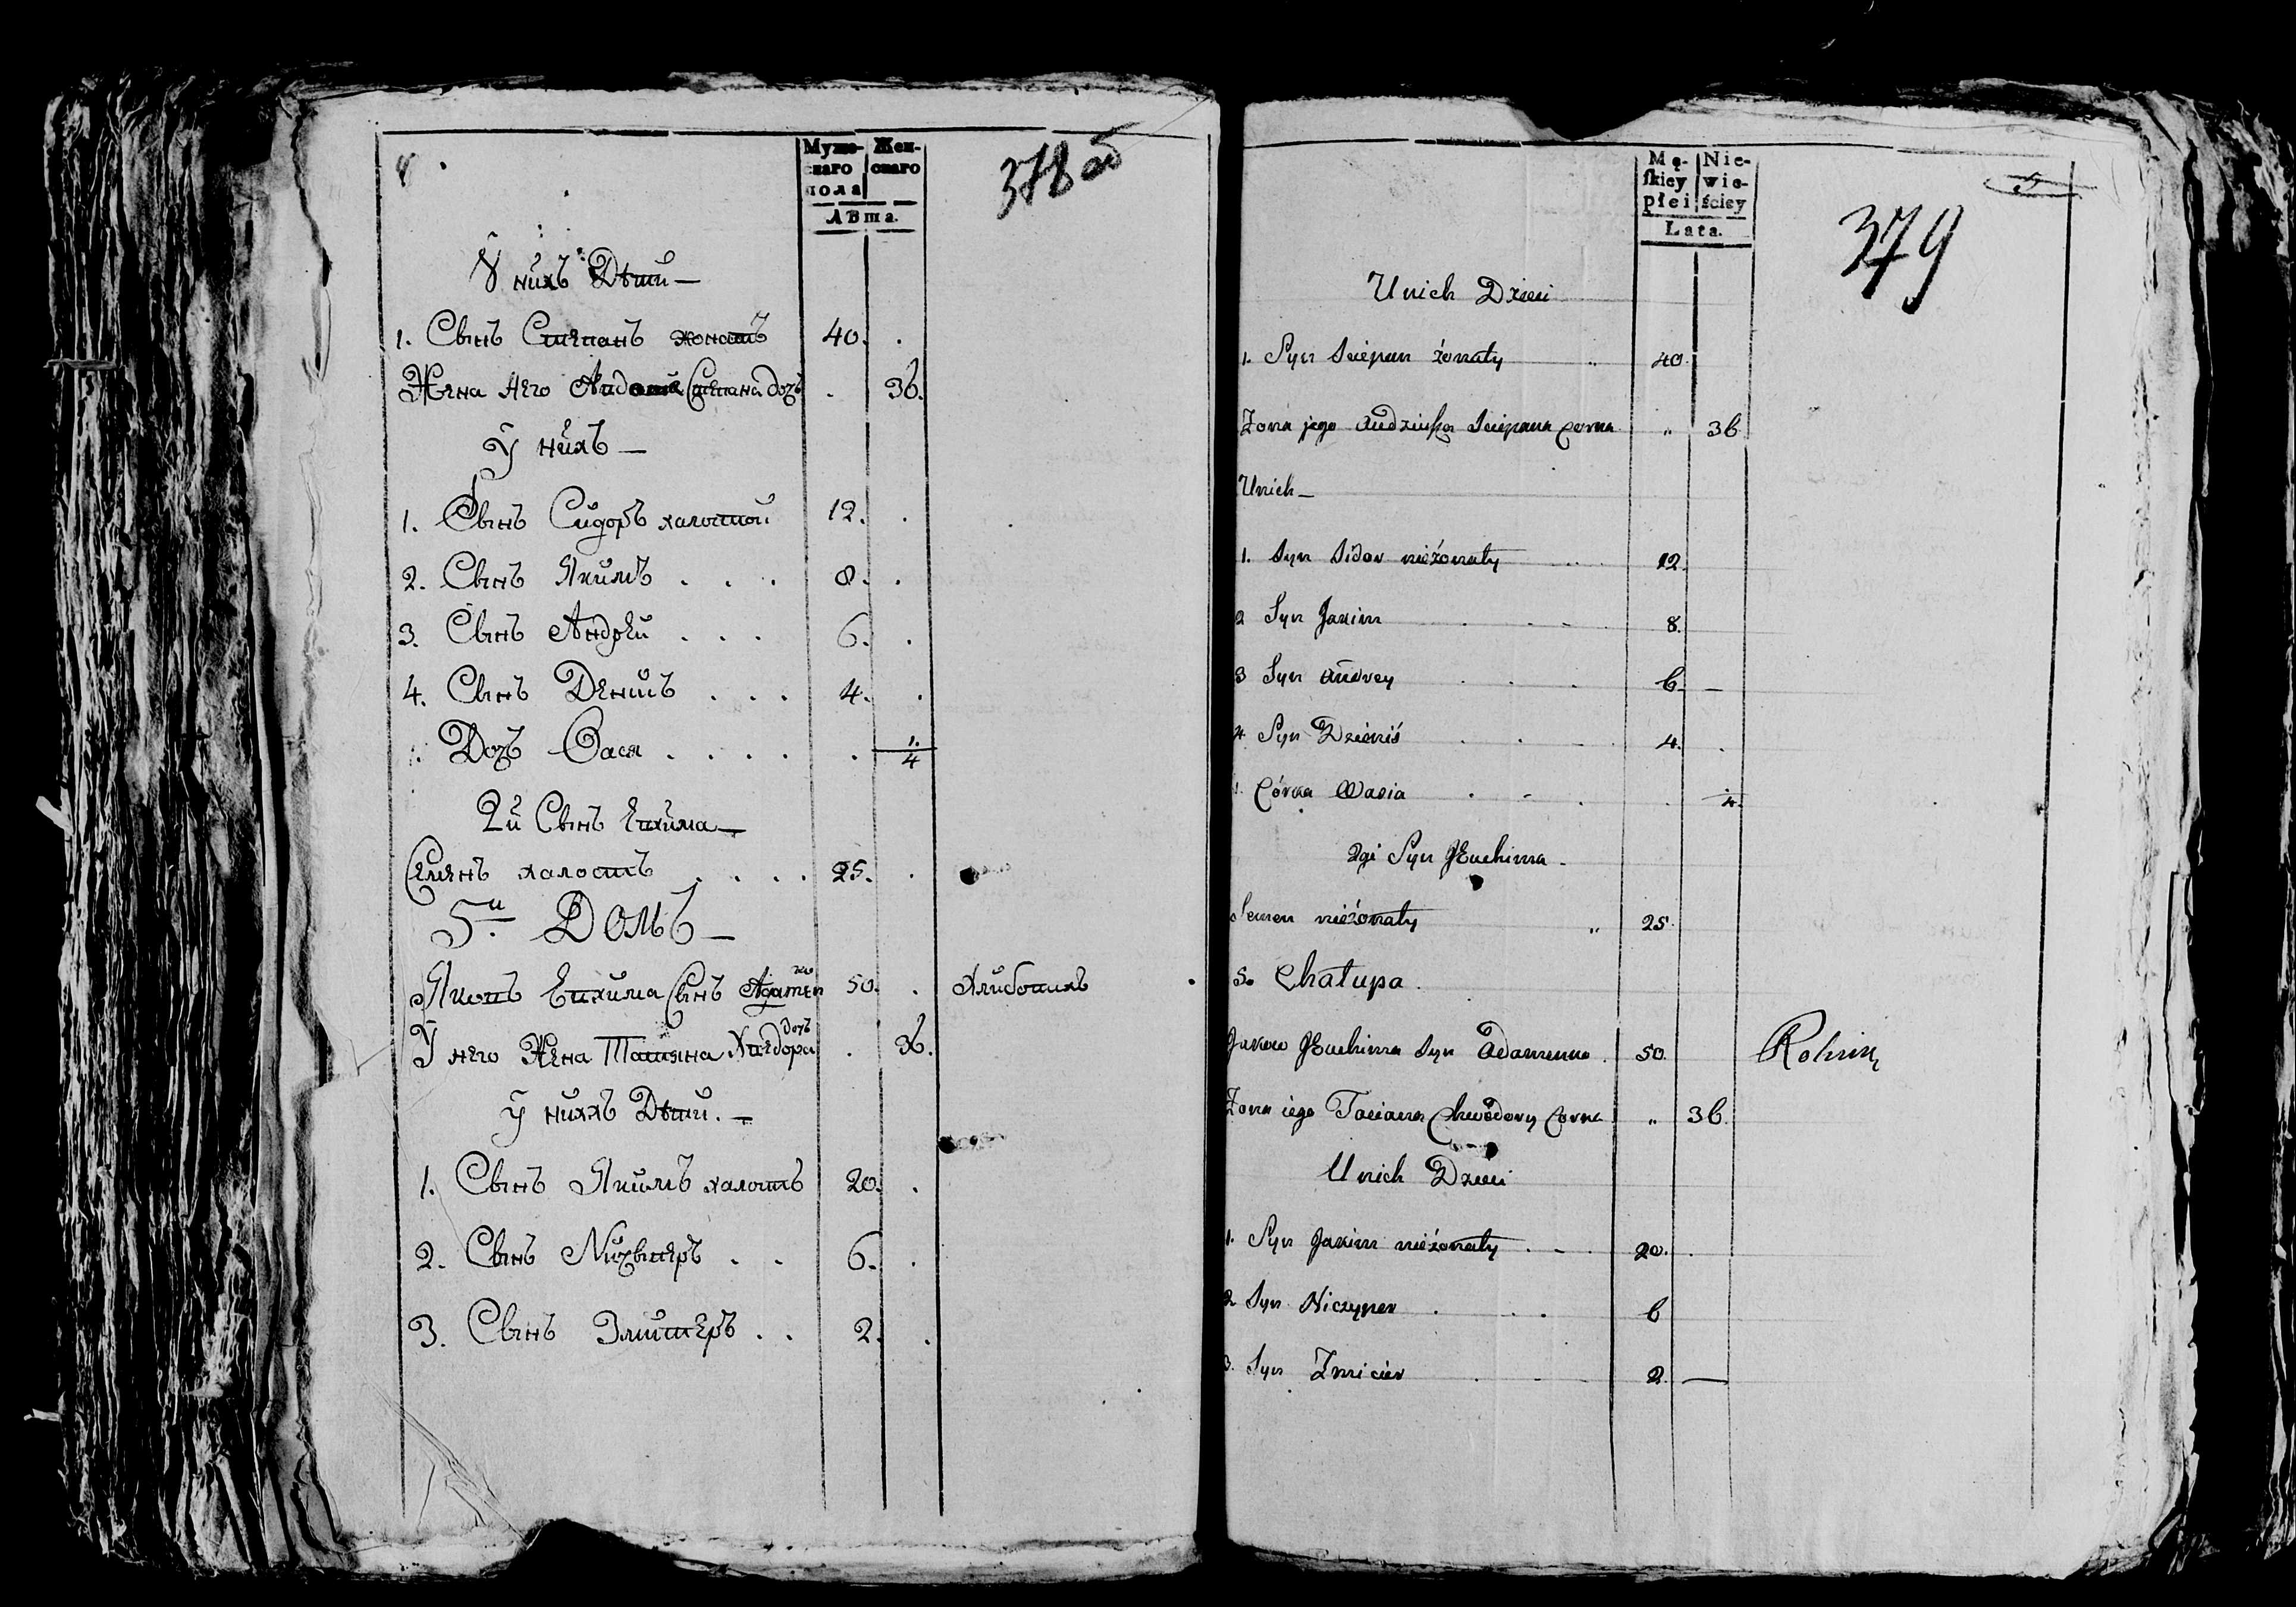 4
Муже-
скаго
пола
Жен-
скаго
Лѣта.
378 об
У нихъ Дѣти —
1. Сынъ Степанъ жонатъ 40.
Жена Его Степана дочь 36.
У нихъ —
1. Сынъ Сидоръ халостой 12.
2. Сынъ Якимъ . . . 8.
3. Сынъ Андрей . . . 6.
4. Сынъ Денисъ . . . 4.
1. Дочь Вася . . . . 1/4
2й Сынъ Евхима —
Семенъ халостъ . . . . 25.
5й Домъ —
Якопъ Евхима Сынъ Адаменко 50. Хлибопихъ
У него Жена Татяна Хведора дочь 36.
у нихъ Дѣти. —
1. Сынъ Якимъ халостъ 20.
2. Сынъ Ничыперъ . . 6.
3. Сынъ Змитеръ . . 2.
Mę-
skiey
płci
Nie-
wie-
ściey
Lata.
5
379
U nich Dzieci
1. Syn Sciepan żonaty 40.
Żona jego Audziuszka Sciepana Corka " 36
U nich —
1. Syn Sidor nieżonaty 12.
2 Syn Jakim 8.
3 Syn Andrey 6. —
4. Syn Dzieniś 4.
1. Córka Wasia 1/4.
2gi Syn Jeuchima —
Semen nieżonaty " 25.
5. Chałupa.
Jakow Jeuchima Syn Adamenko. 50. Rolnik
Żona iego Taciana Chwiedory Corka " 36.
U nich Dzieci
1. Syn Jakim nieżonaty 20.
2 Syn Niczyper 6
3. Syn Zmicier 2. —